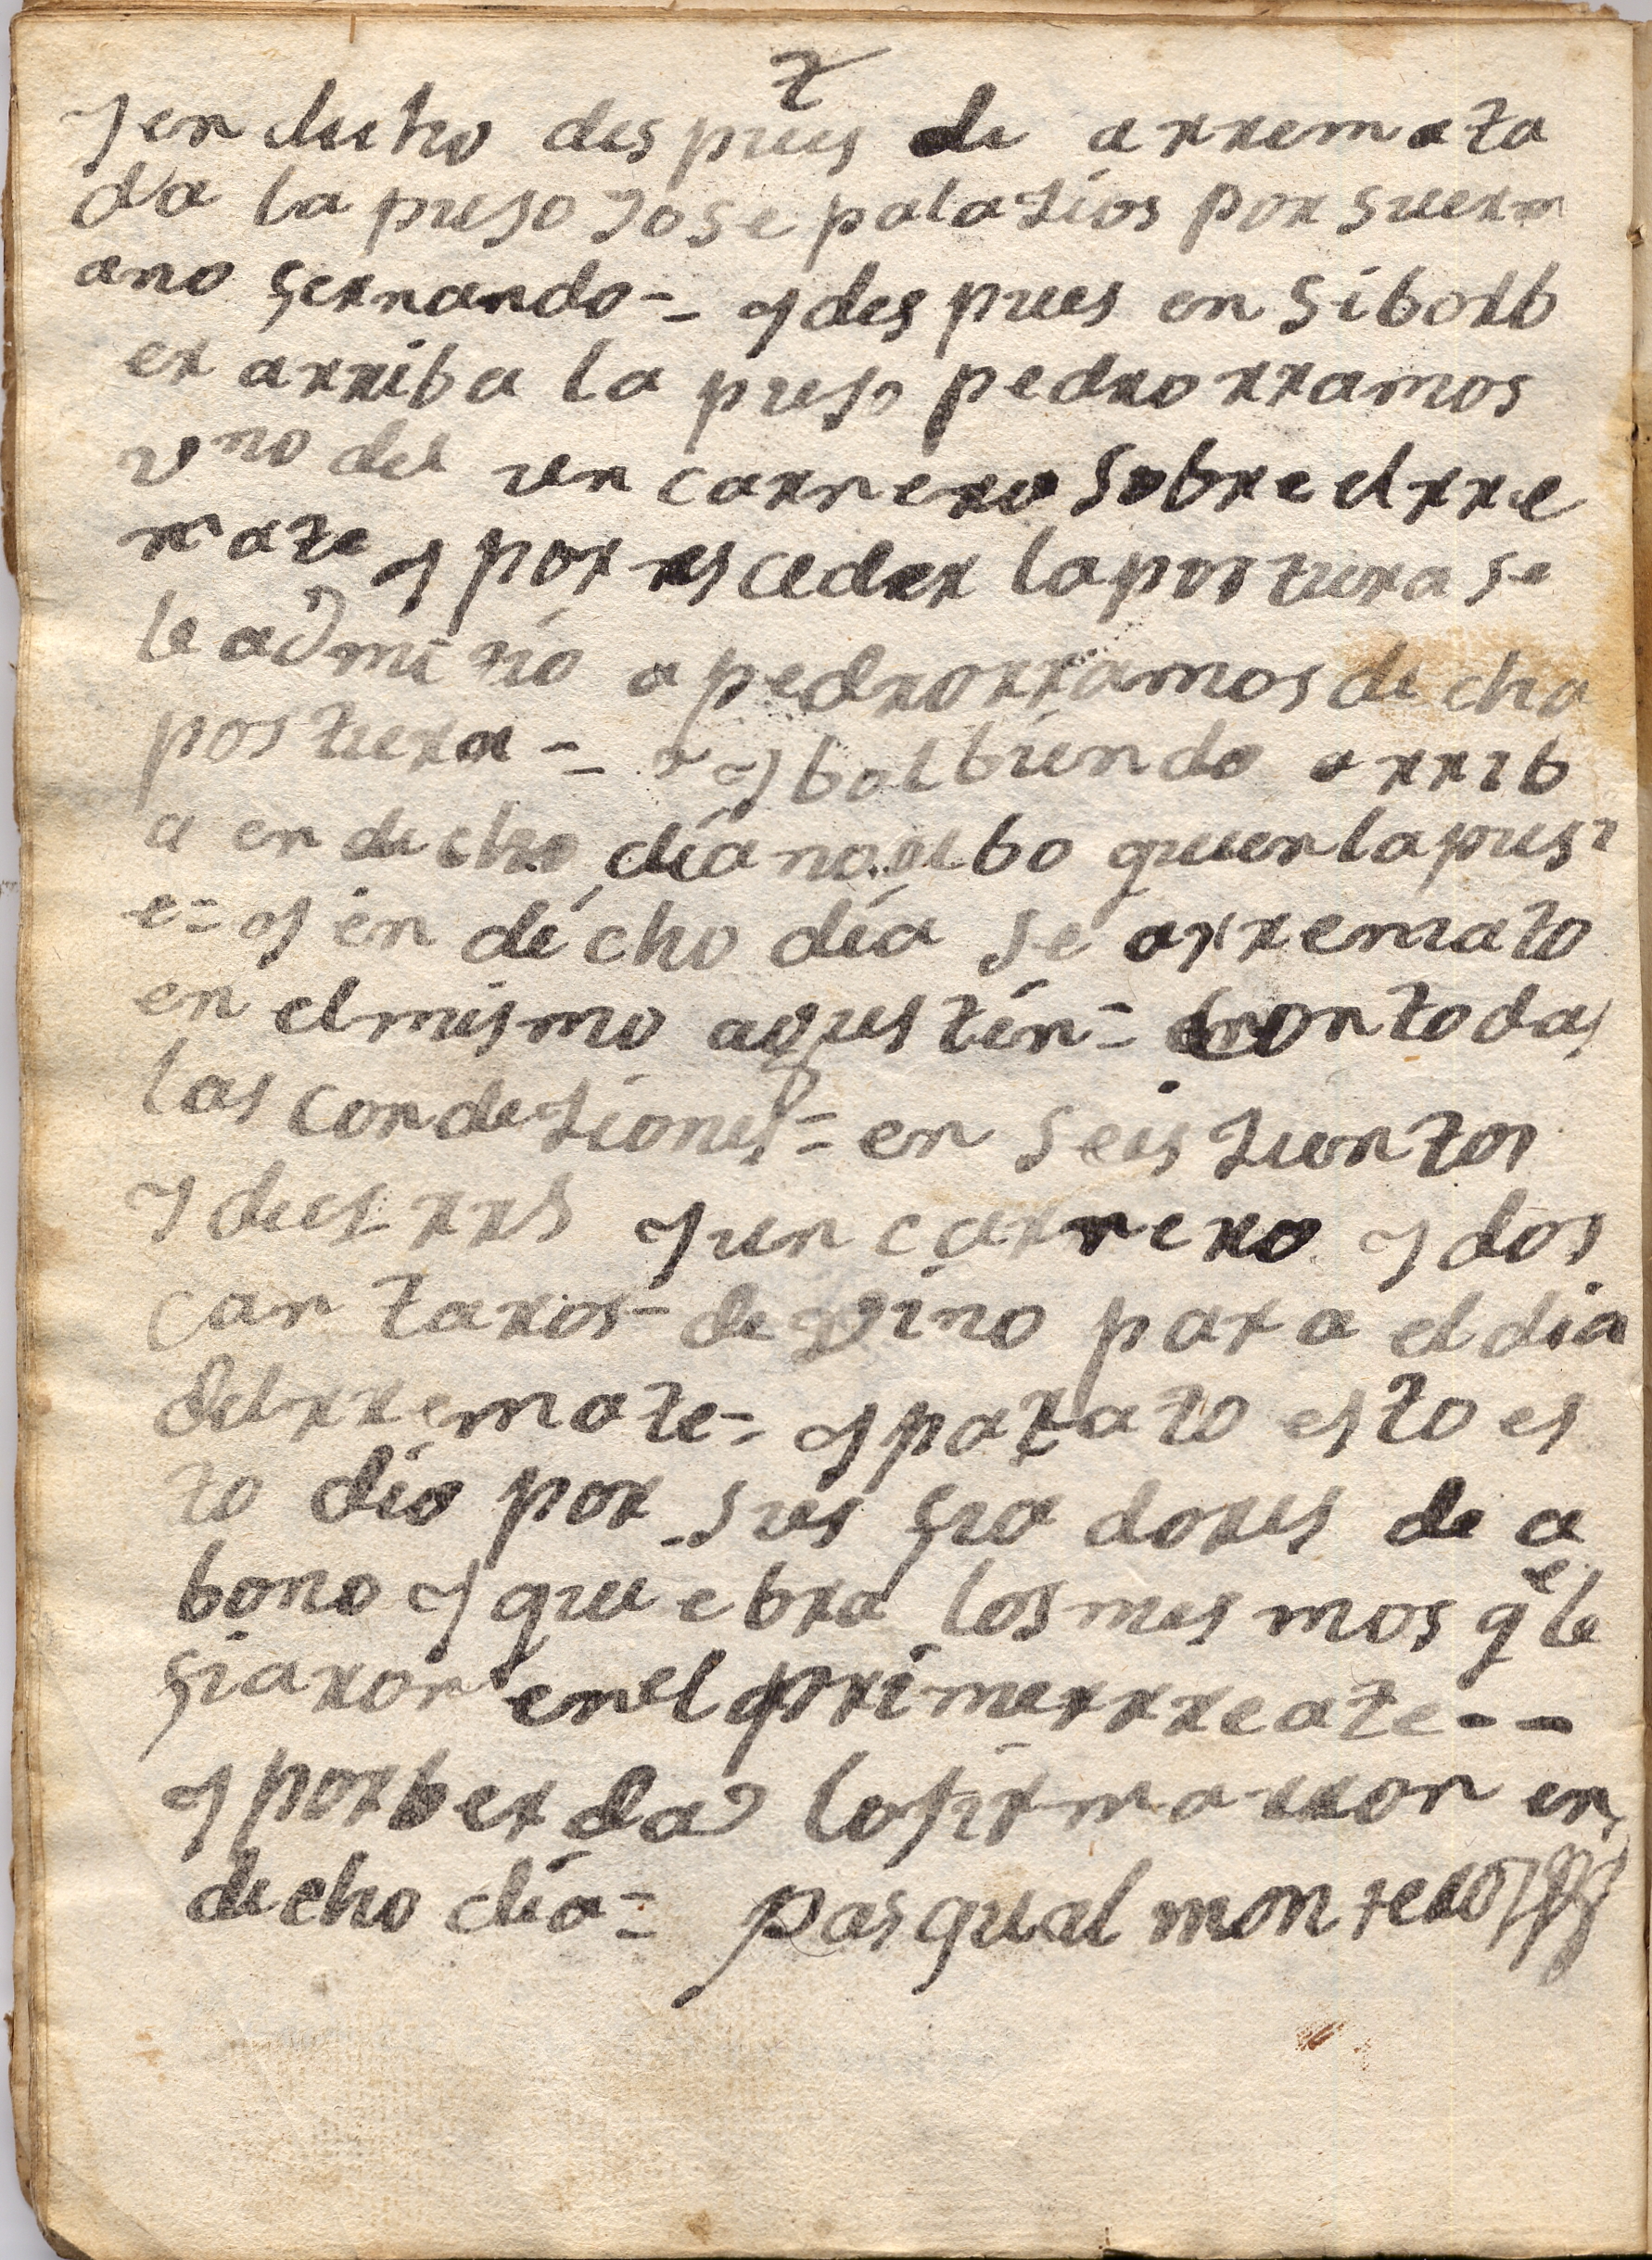 y en dicho des pues de arremata
da la puso Jose palaZios por suerm
ano fernando = y des pues en si bolb
er arriba la puso pedro rramos
vno del un carnero sobre el rre
mate y por esceder la postura se
le admitió a pedro rramos di cha
postura = y bolbiendo arrib
a en di cho día no ubo quien la pusi
e = y en dicho día se arremato
en el mismo agustín = con todas
las condiZiones = en seis Zientos
y dies rrs y un carnero y dos
can taros de vino para el dia
del rremate = y para to es to es
to dio por sus fia dores de a
bono y qui e bra los mes mos qe le
fiaron en el primer rreate - -
y por ber dad lo firmarron en
di cho día = pasqual montero